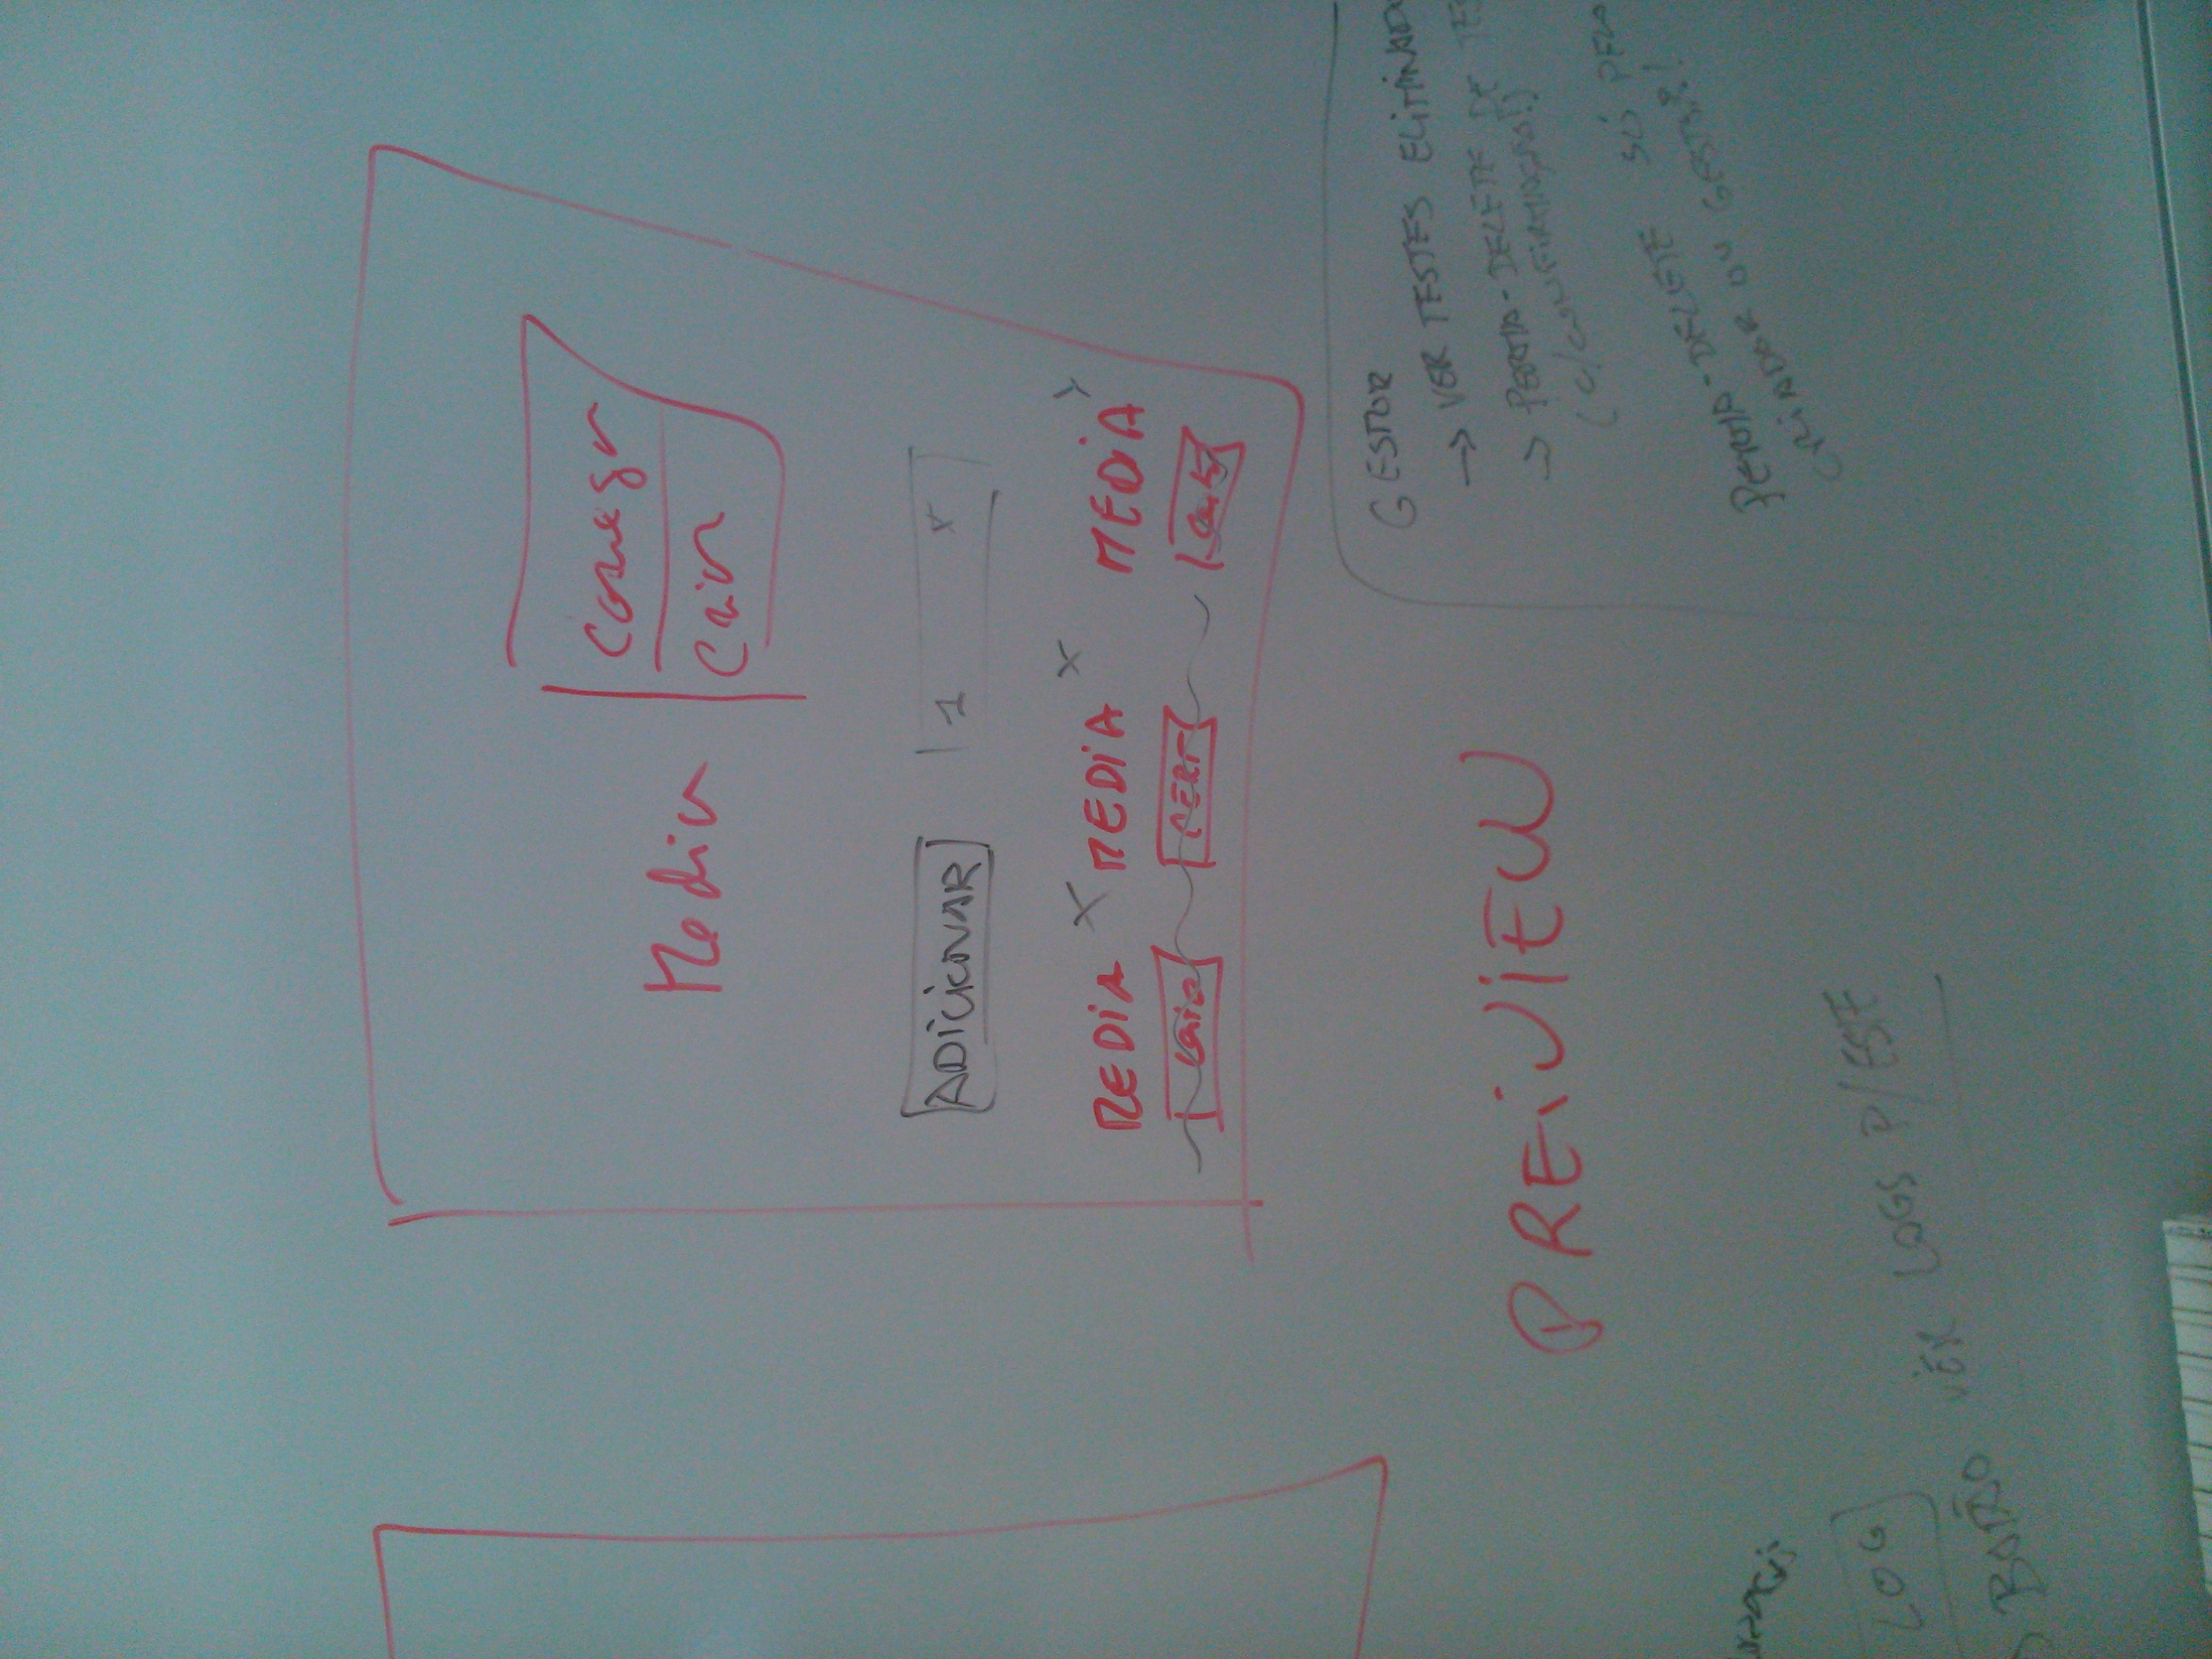 Media
Criar
ADICIONAR
1
MEDIA x MEDIA x MEDIA
CERT
PREiVIEW
GESTOR
→ VER TESTES ELIMINADO
→ PERMA-DELETE DE TES
(C/CONFIRMAÇÃO!)
PERMA-DELETE SÓ PELO
CRIADOR OU GESTOR!
LOG
BOTÃO VER LOGS P/ESTE